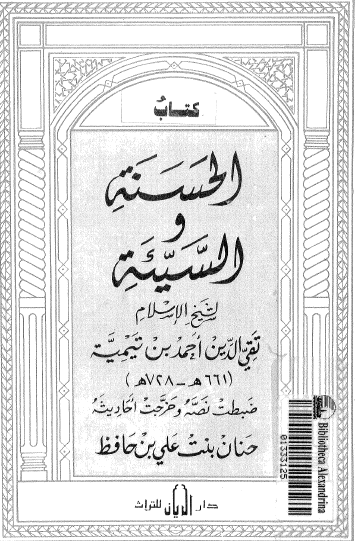 كتاب
الحَسَنَة
و
السَّيِّئَة
لشيخ الإسلام
تقي الدين أحمد بن تيمية
(٦٦١هـ - ٧٢٨هـ)
ضبطت نصه وخرجت أحاديثه
حنان بنت علي بن حافظ
دار الريان للتراث
Bibliotheca Alexandrina
0133125